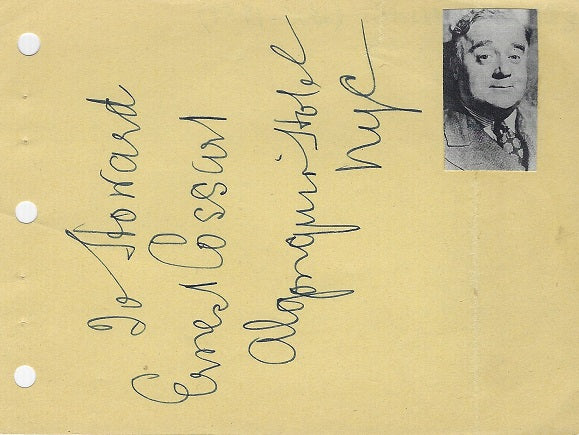 To Howard
Ernest Cossart
Algonquin Hotel
NYC